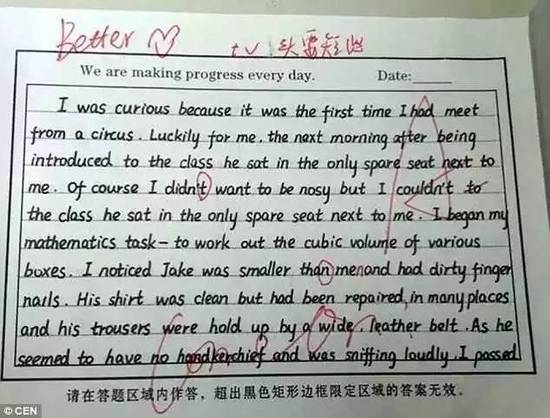 Better
tv 头要短些
We are making progress every day. Date:
I was curious because it was the first time I had meet
from a circus. Luckily for me. the next morning after being
introduced to the class he sat in the only spare seat next to
me. Of course I didn't want to be nosy but I couldn't to
the class he sat in the only spare seat next to me. I began my
mathematics task- to work out the cubic volume of various
boxes. I noticed Jake was smaller than menand had dirty finger
nails. His shirt was clean but had been repaired, in many places
and his trousers were hold up by a wide, leather belt. As he
seemed to have no handkerchief and was sniffing loudly. I passed
请在答题区域内作答，超出黑色矩形边框限定区域的答案无效。
© CEN